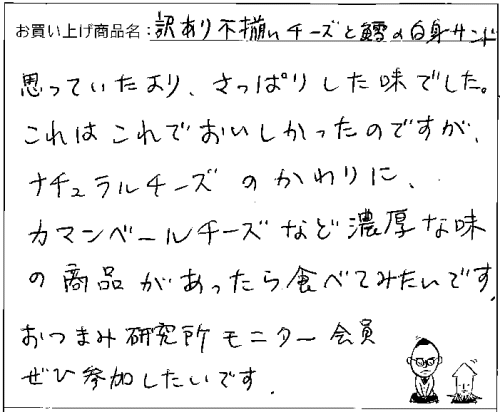 お買い上げ商品名:訳あり不揃いチーズと鱈の白身サンド
思っていたより、さっぱりした味でした。
これはこれでおいしかったのですが、
ナチュラルチーズのかわりに、
カマンベールチーズなど濃厚な味
の商品があったら食べてみたいです。
おつまみ研究所モニター会員
ぜひ参加したいです.